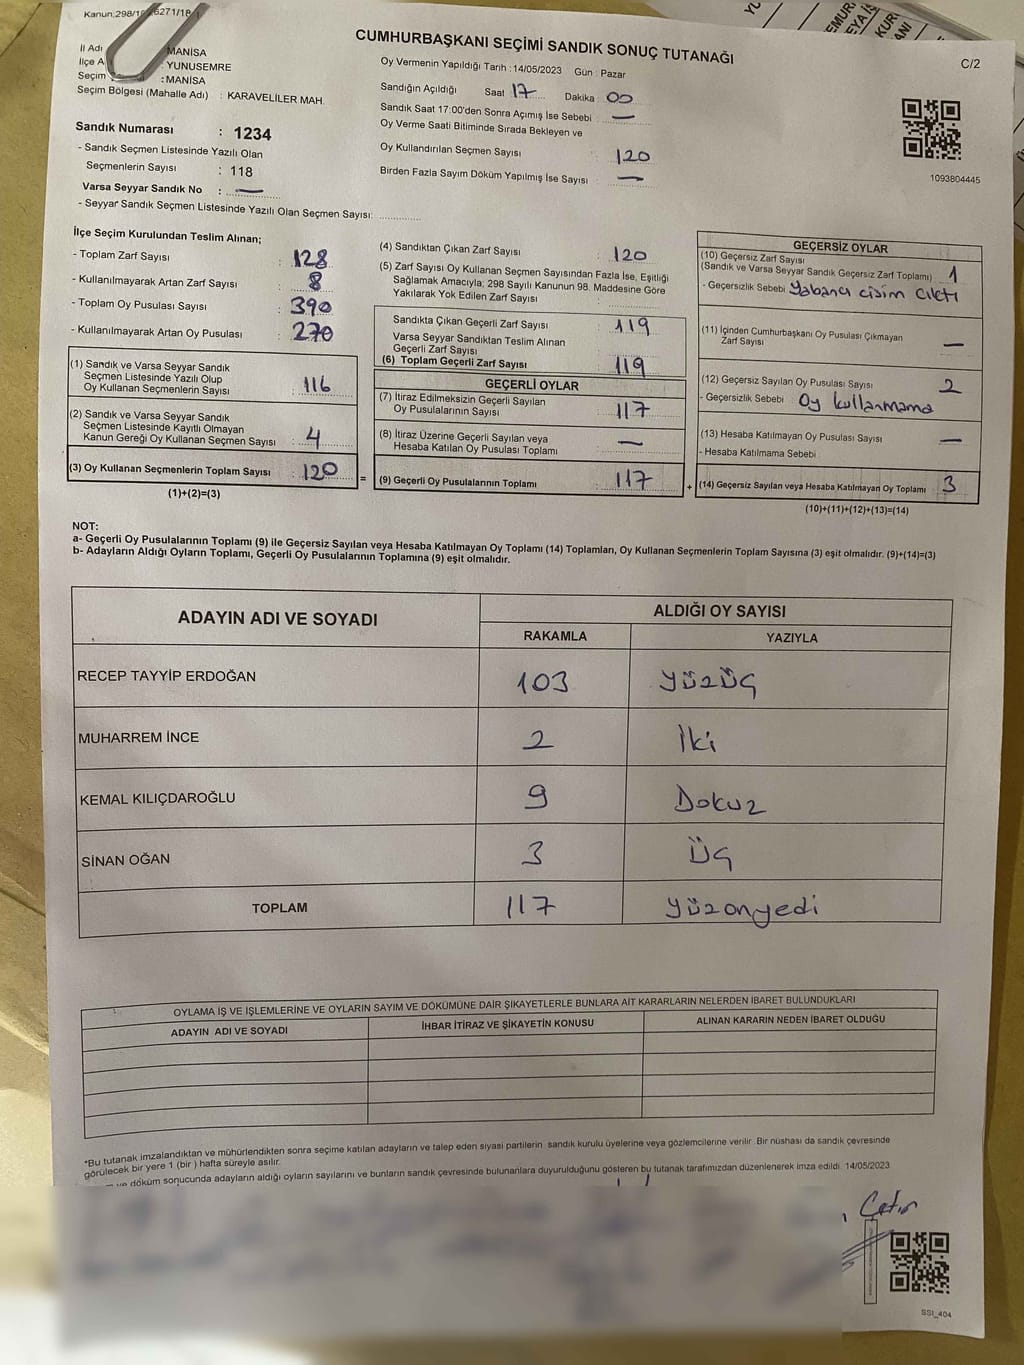 Kanun,298/1
6271/18
CUMHURBAŞKANI SEÇİMİ SANDIK SONUÇ TUTANAĞI
C/2
İl Adı : MANİSA
İlçe A : YUNUSEMRE
Seçim : MANİSA
Seçim Bölgesi (Mahalle Adı) : KARAVELİLER MAH.
Sandık Numarası : 1234
- Sandık Seçmen Listesinde Yazılı Olan
Seçmenlerin Sayısı : 118
Varsa Seyyar Sandık No : —
- Seyyar Sandık Seçmen Listesinde Yazılı Olan Seçmen Sayısı:
Oy Vermenin Yapıldığı Tarih : 14/05/2023 Gün : Pazar
Sandığın Açıldığı Saat 17 Dakika : 00
Sandık Saat 17:00'den Sonra Açımış İse Sebebi : —
Oy Verme Saati Bitiminde Sırada Bekleyen ve
Oy Kullandırılan Seçmen Sayısı : 120
Birden Fazla Sayım Döküm Yapılmış İse Sayısı : —
1093804445
İlçe Seçim Kurulundan Teslim Alınan;
- Toplam Zarf Sayısı : 128
- Kullanılmayarak Artan Zarf Sayısı : 8
- Toplam Oy Pusulası Sayısı : 390
- Kullanılmayarak Artan Oy Pusulası : 270
(1) Sandık ve Varsa Seyyar Sandık
Seçmen Listesinde Yazılı Olup
Oy Kullanan Seçmenlerin Sayısı : 116
(2) Sandık ve Varsa Seyyar Sandık
Seçmen Listesinde Kayıtlı Olmayan
Kanun Gereği Oy Kullanan Seçmen Sayısı : 4
(3) Oy Kullanan Seçmenlerin Toplam Sayısı : 120
(1)+(2)=(3)
=
(4) Sandıktan Çıkan Zarf Sayısı : 120
(5) Zarf Sayısı Oy Kullanan Seçmen Sayısından Fazla İse, Eşitliği
Sağlamak Amacıyla; 298 Sayılı Kanunun 98. Maddesine Göre
Yakılarak Yok Edilen Zarf Sayısı :
Sandıkta Çıkan Geçerli Zarf Sayısı : 119
Varsa Seyyar Sandıktan Teslim Alınan
Geçerli Zarf Sayısı :
(6) Toplam Geçerli Zarf Sayısı : 119
GEÇERLİ OYLAR
(7) İtiraz Edilmeksizin Geçerli Sayılan
Oy Pusulalarının Sayısı : 117
(8) İtiraz Üzerine Geçerli Sayılan veya
Hesaba Katılan Oy Pusulası Toplamı : —
(9) Geçerli Oy Pusulalarının Toplamı : 117
+
GEÇERSİZ OYLAR
(10) Geçersiz Zarf Sayısı
(Sandık ve Varsa Seyyar Sandık Geçersiz Zarf Toplamı) 1
- Geçersizlik Sebebi : Yabancı cisim çıktı
(11) İçinden Cumhurbaşkanı Oy Pusulası Çıkmayan
Zarf Sayısı —
(12) Geçersiz Sayılan Oy Pusulası Sayısı 2
- Geçersizlik Sebebi : Oy kullanmama
(13) Hesaba Katılmayan Oy Pusulası Sayısı —
- Hesaba Katılmama Sebebi
(14) Geçersiz Sayılan veya Hesaba Katılmayan Oy Toplamı 3
(10)+(11)+(12)+(13)=(14)
NOT:
a- Geçerli Oy Pusulalarının Toplamı (9) ile Geçersiz Sayılan veya Hesaba Katılmayan Oy Toplamı (14) Toplamları, Oy Kullanan Seçmenlerin Toplam Sayısına (3) eşit olmalıdır. (9)+(14)=(3)
b- Adayların Aldığı Oyların Toplamı, Geçerli Oy Pusulalarının Toplamına (9) eşit olmalıdır.
ADAYIN ADI VE SOYADI ALDIĞI OY SAYISI
RAKAMLA YAZIYLA
RECEP TAYYİP ERDOĞAN 103 Yüzüç
MUHARREM İNCE 2 İki
KEMAL KILIÇDAROĞLU 9 Dokuz
SİNAN OĞAN 3 Üç
TOPLAM 117 Yüzonyedi
OYLAMA İŞ VE İŞLEMLERİNE VE OYLARIN SAYIM VE DÖKÜMÜNE DAİR ŞİKAYETLERLE BUNLARA AİT KARARLARIN NELERDEN İBARET BULUNDUKLARI
ADAYIN ADI VE SOYADI İHBAR İTİRAZ VE ŞİKAYETİN KONUSU ALINAN KARARIN NEDEN İBARET OLDUĞU
*Bu tutanak imzalandıktan ve mühürlendikten sonra seçime katılan adayların ve talep eden siyasi partilerin sandık kurulu üyelerine veya gözlemcilerine verilir. Bir nüshası da sandık çevresinde
görülecek bir yere 1 (bir) hafta süreyle asılır.
ve döküm sonucunda adayların aldığı oyların sayılarını ve bunların sandık çevresinde bulunanlara duyurulduğunu gösteren bu tutanak tarafımızdan düzenlenerek imza edildi. 14/05/2023
SSI_404